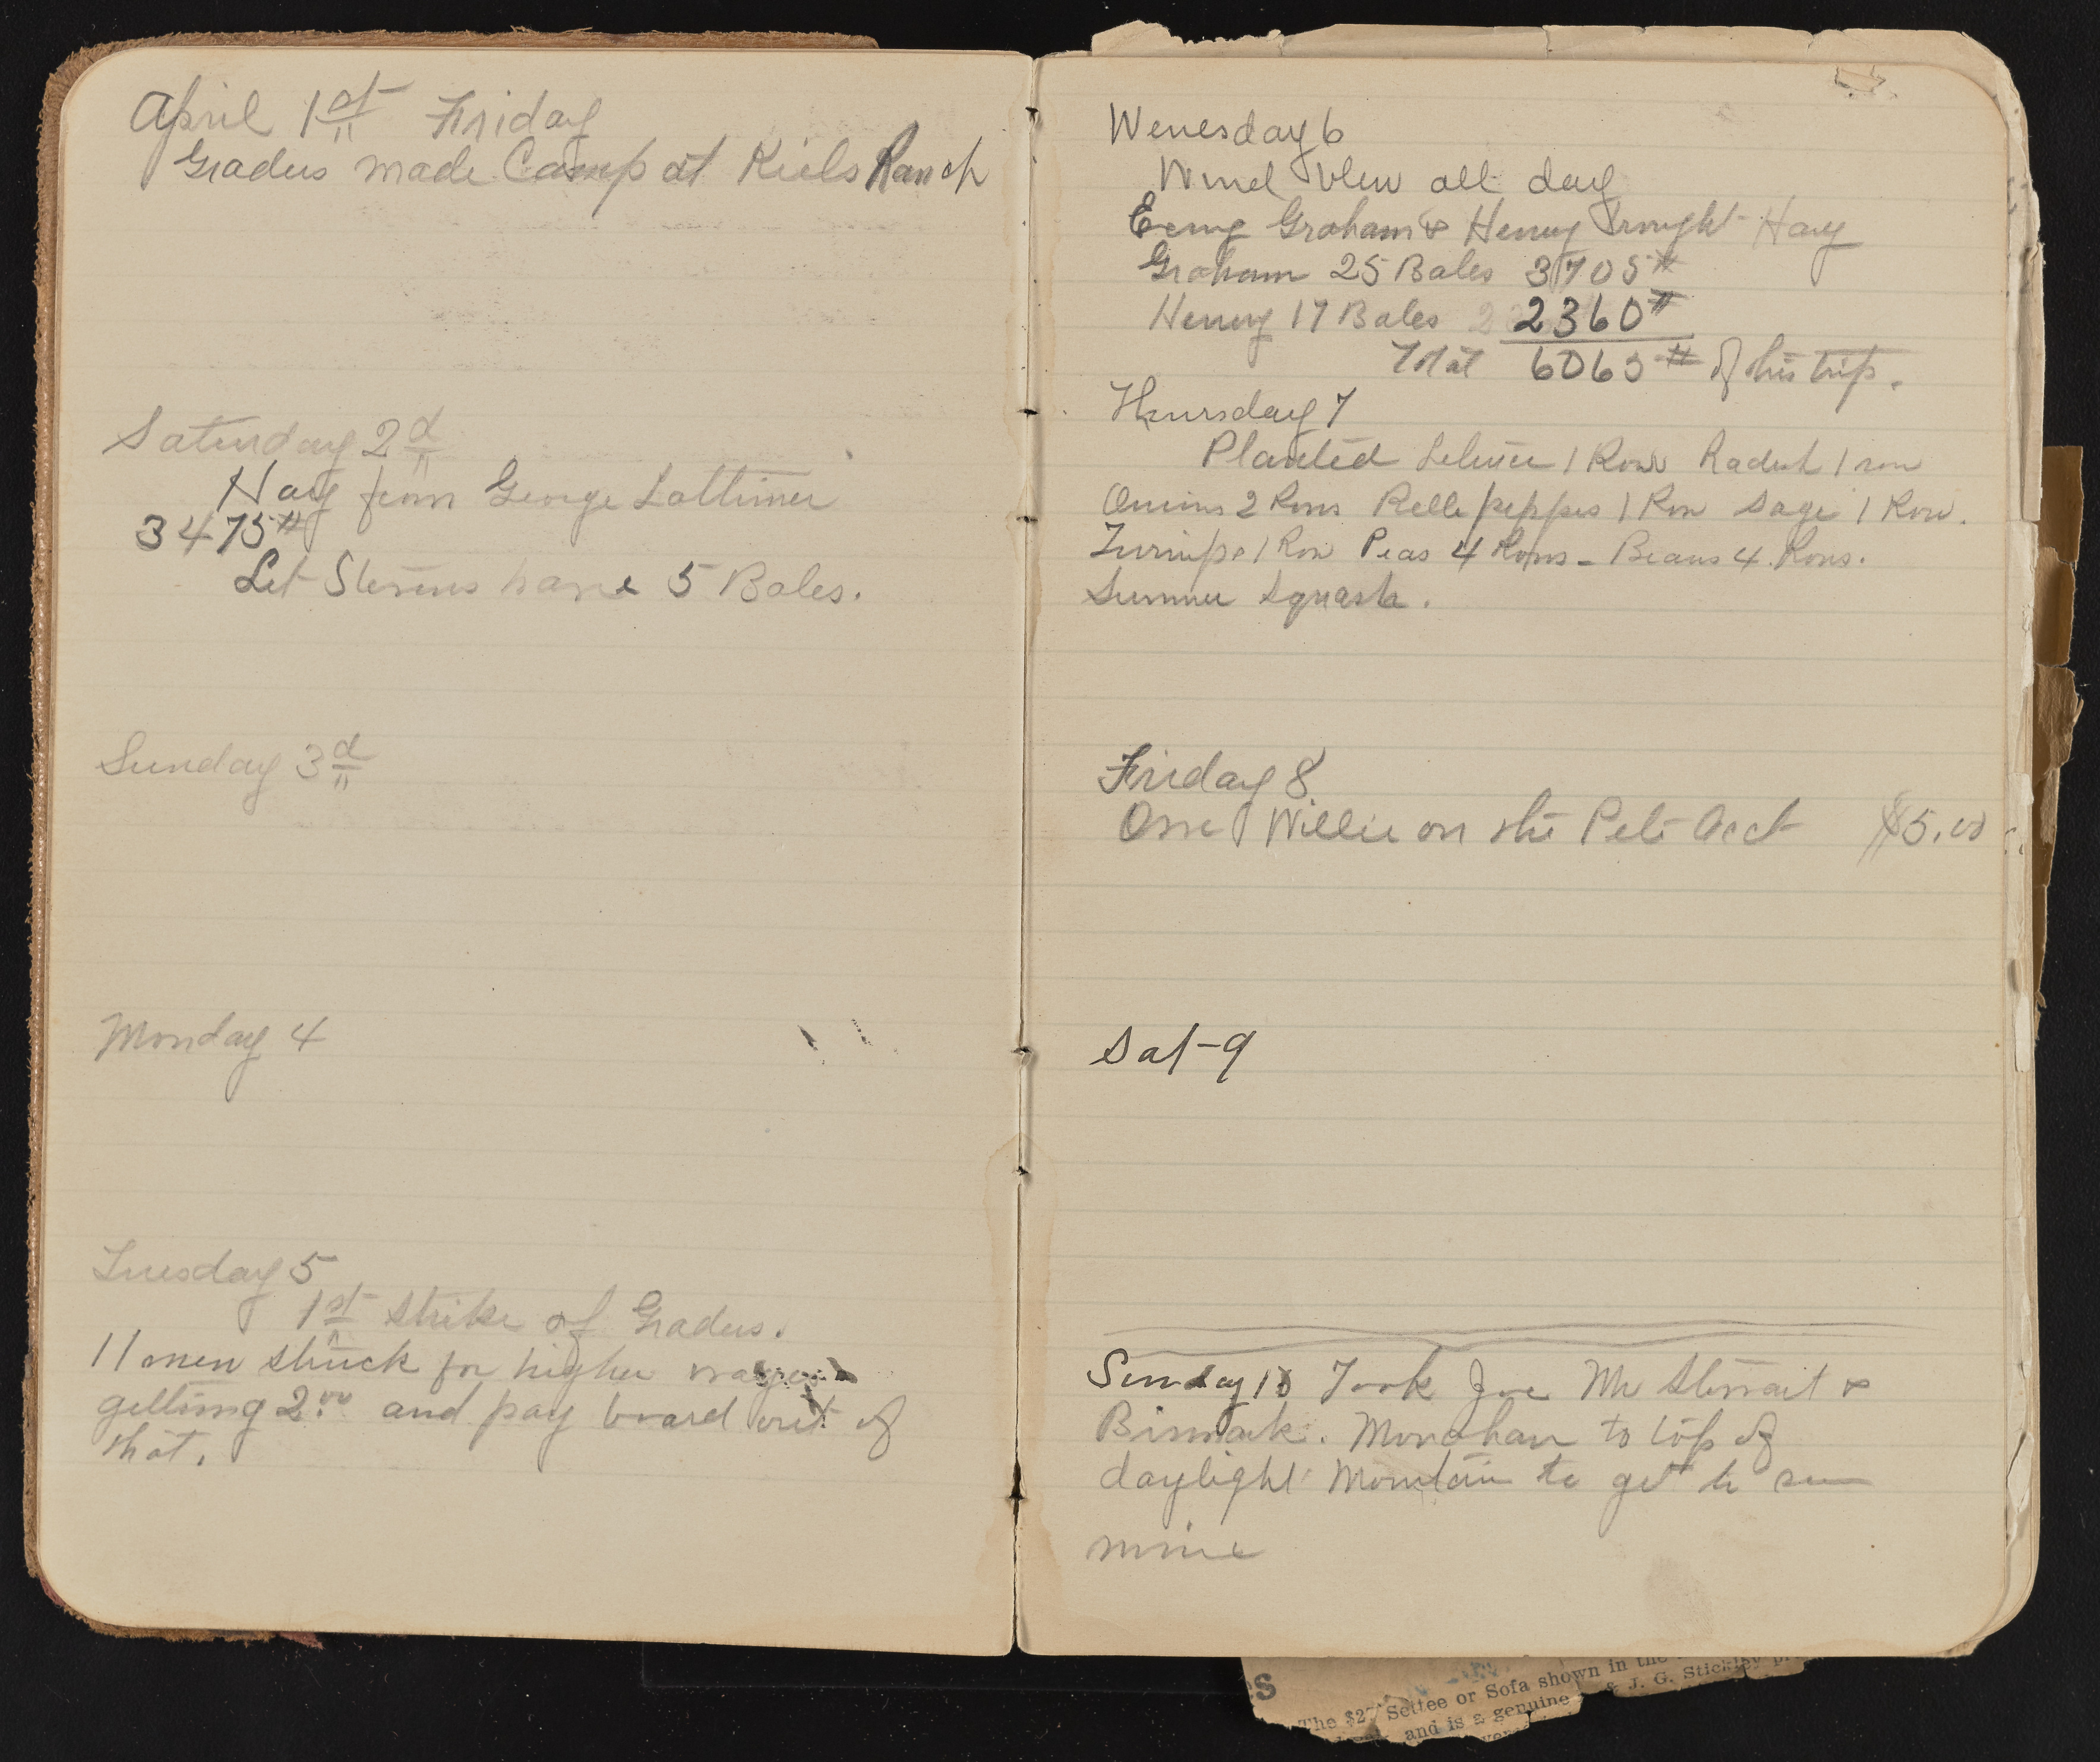 April 1st Friday
Graders made Camp at Kiels Ranch
Saturday 2d
Hay from George Lattimer
3475#
Let Stevens have 5 Bales.
Sunday 3d
Monday 4
Tuesday 5
1st strike of Graders.
11 men struck for higher wages
getting 2.00 and pay board out of
that.
Wenesday 6
Wind blew all day
Graham & Henry brought Hay
Graham 25 Bales 3705#
Henry 17 Bales 2360#
Total 6065# of his trip.
Thursday 7
Planted Lettuce 1 Row Radish 1 row
Onions 2 Rows Belle peppes 1 Row Sage 1 Row.
Turnips 1 Row Peas 4 Rows - Beans 4 Rows.
Summer Squash.
Friday 8
Willie on the Acct $5.00
Sat-9
Sunday 10 Took Joe Mc &
Bismark. Monahan to top of
daylight Mountain to get to
mine
The $27 Settee or Sofa shown in the
& J. G. Stickley
and is a genuine